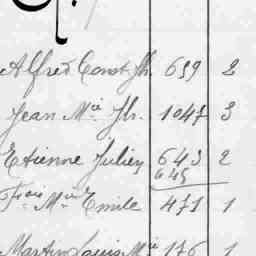 Alfred Const Jh. 659 2
Jean Mie Jh. 1047 3
Etienne Julien 643 2
645
Frois Mie Emile 471 1
Martin Louis Mie 176 1